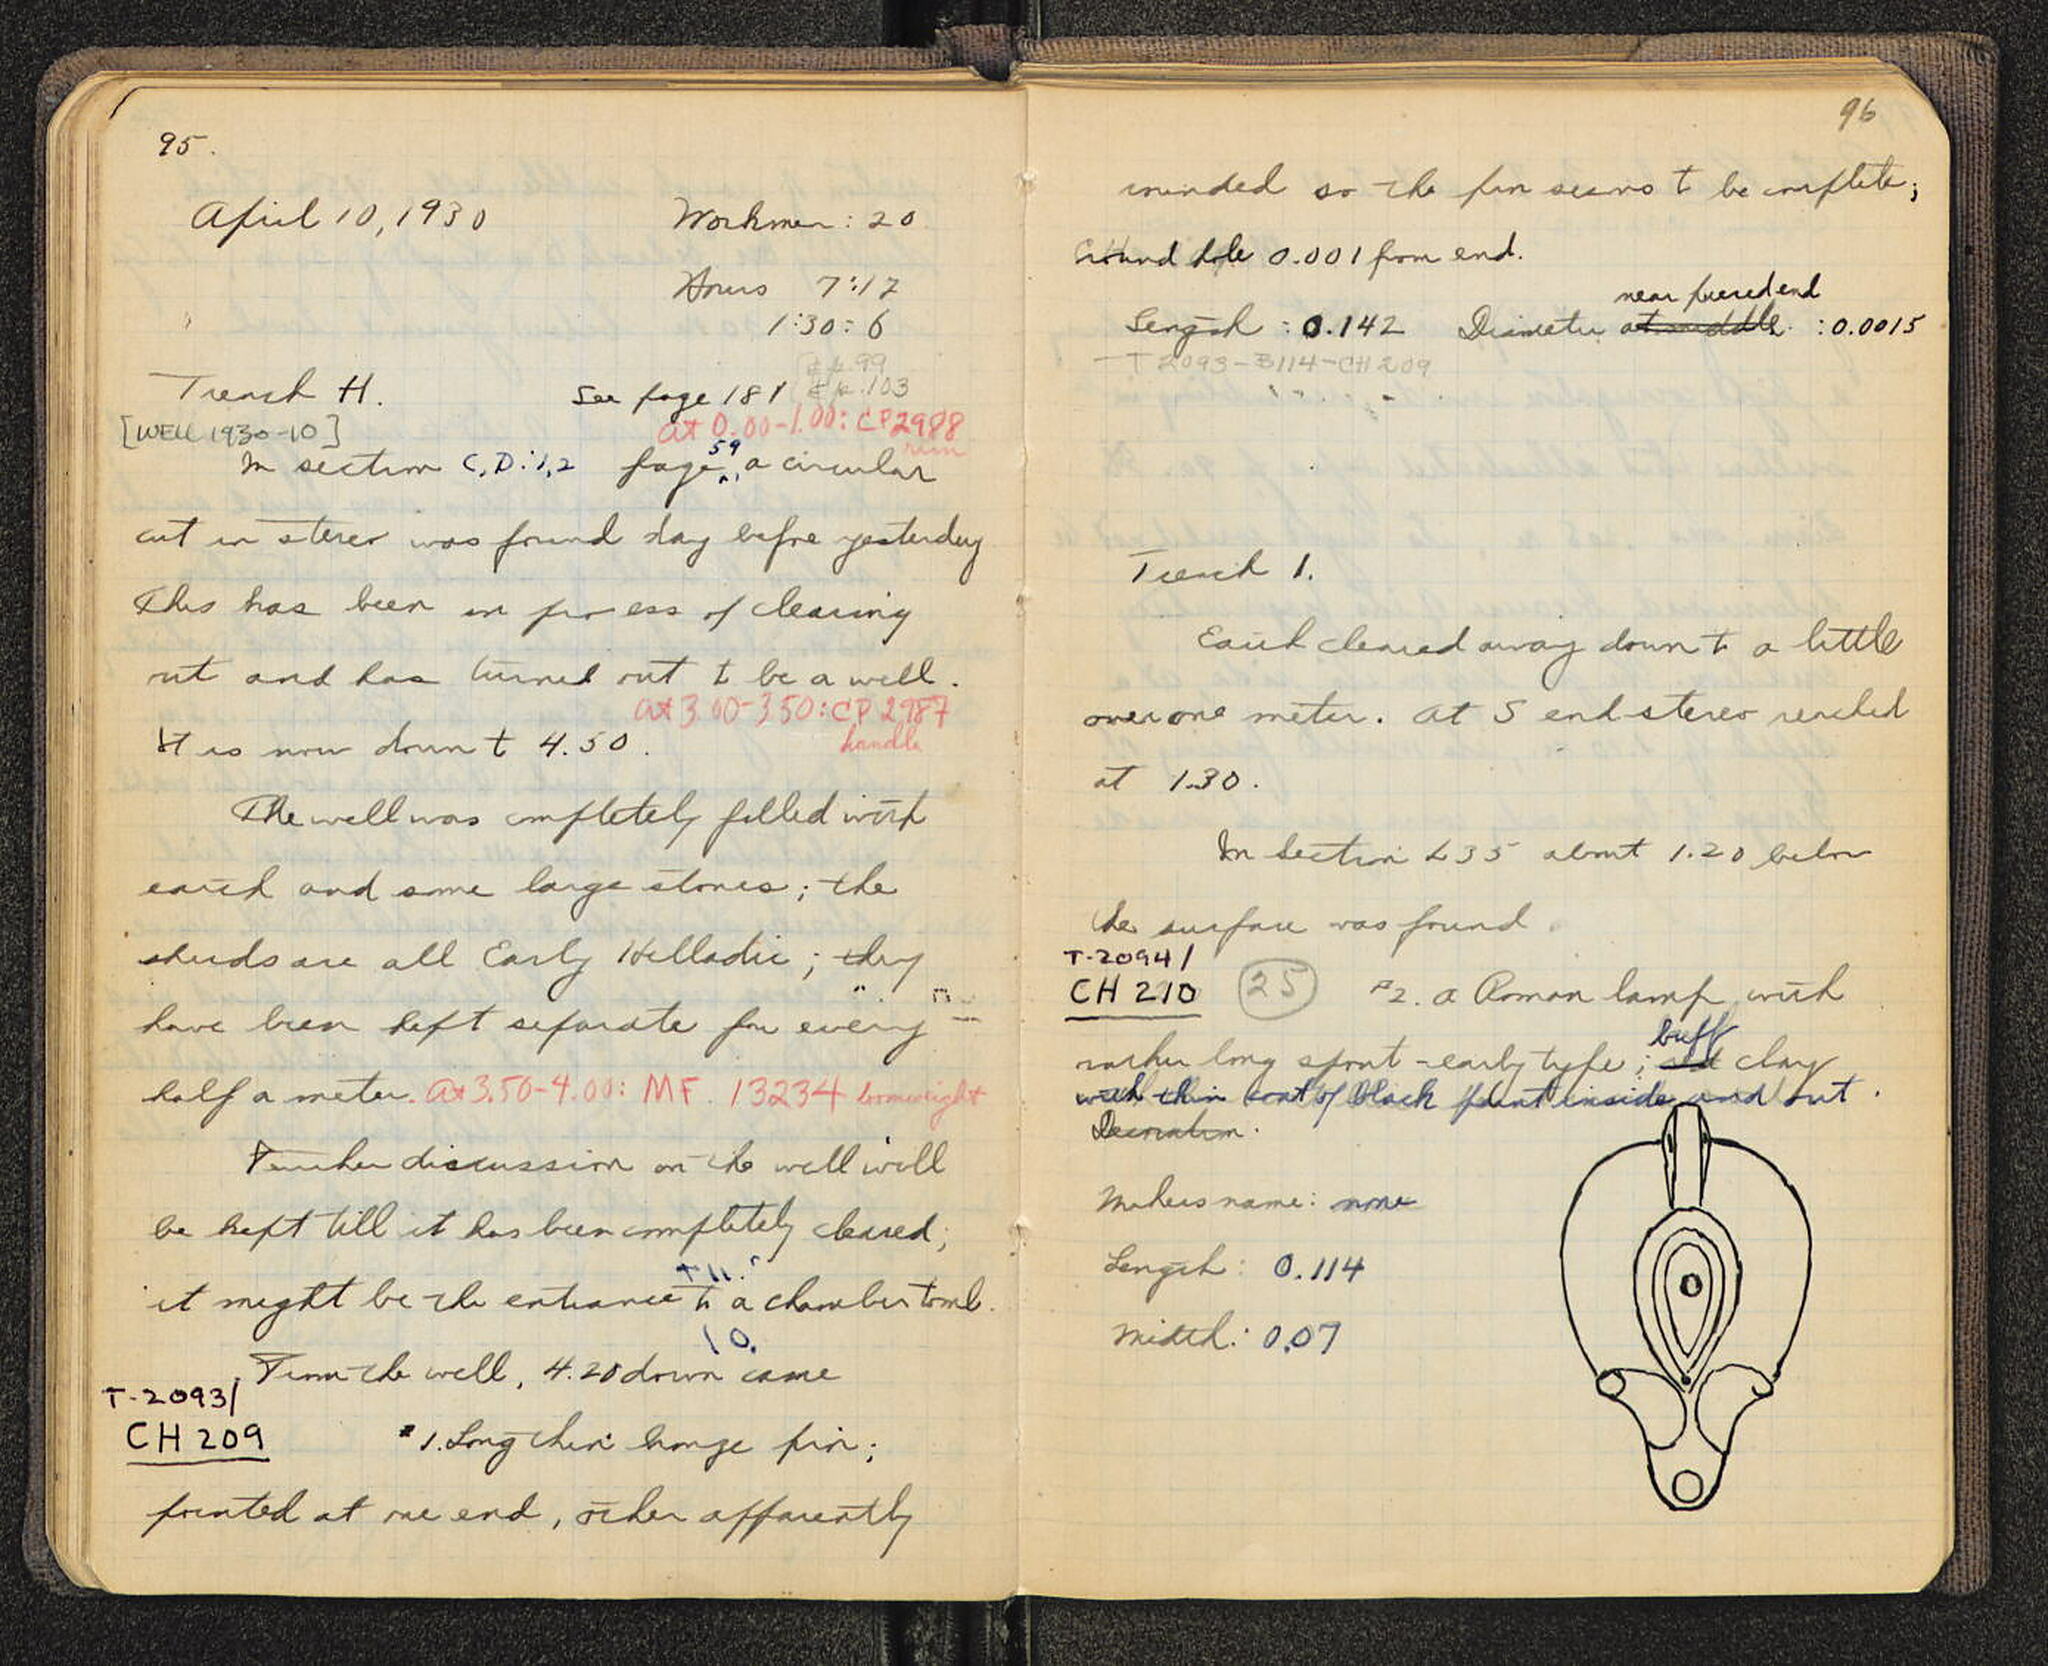 95.
April 10, 1930 Workmen: 20
Hours 7:12
1:30:6
p. 99
Trench H. See page 181 p. 103
[WELL 1930-10] at 0.00-1.00: CP 2988
rim
In section C, D:1,2 page 59, a circular
cut in stereo was found day before yesterday
This has been in process of clearing
out and has turned out to be a well.
at 3.00-3.50: CP 2987
It is now down to 4.50. handle
The well was completely filled with
earth and some large stones; the
sherds are all Early Helladic; they
have been kept separate for every
half a meter. At 3.50-4.00: MF. 13234 loomweight
Further discussion on the well will
be kept till it has been completely cleared;
it might be the entrance to a chamber tomb.
10.
From the well, 4.20 down came
T-2093/
CH 209 #1. Long thin bronze pin;
pointed at one end, other apparently
96
rounded so the pin seems to be complete;
round hole 0.001 from end.
near pierced end
Length: 0.142 Diameter at middle: 0.0015
T 2093-B114-CH209
Trench 1.
Earth cleared away down to a little
over one meter. At S end stereo reached
at 1.30.
In section L35 about 1.20 below
the surface was found
T-2094/
CH 210 25 #2. a Roman lamp with
buff
rather long spout - early type; red clay
with thin coat of black paint inside and out.
Decoration.
Makers name: none
Length: 0.114
Width: 0.07